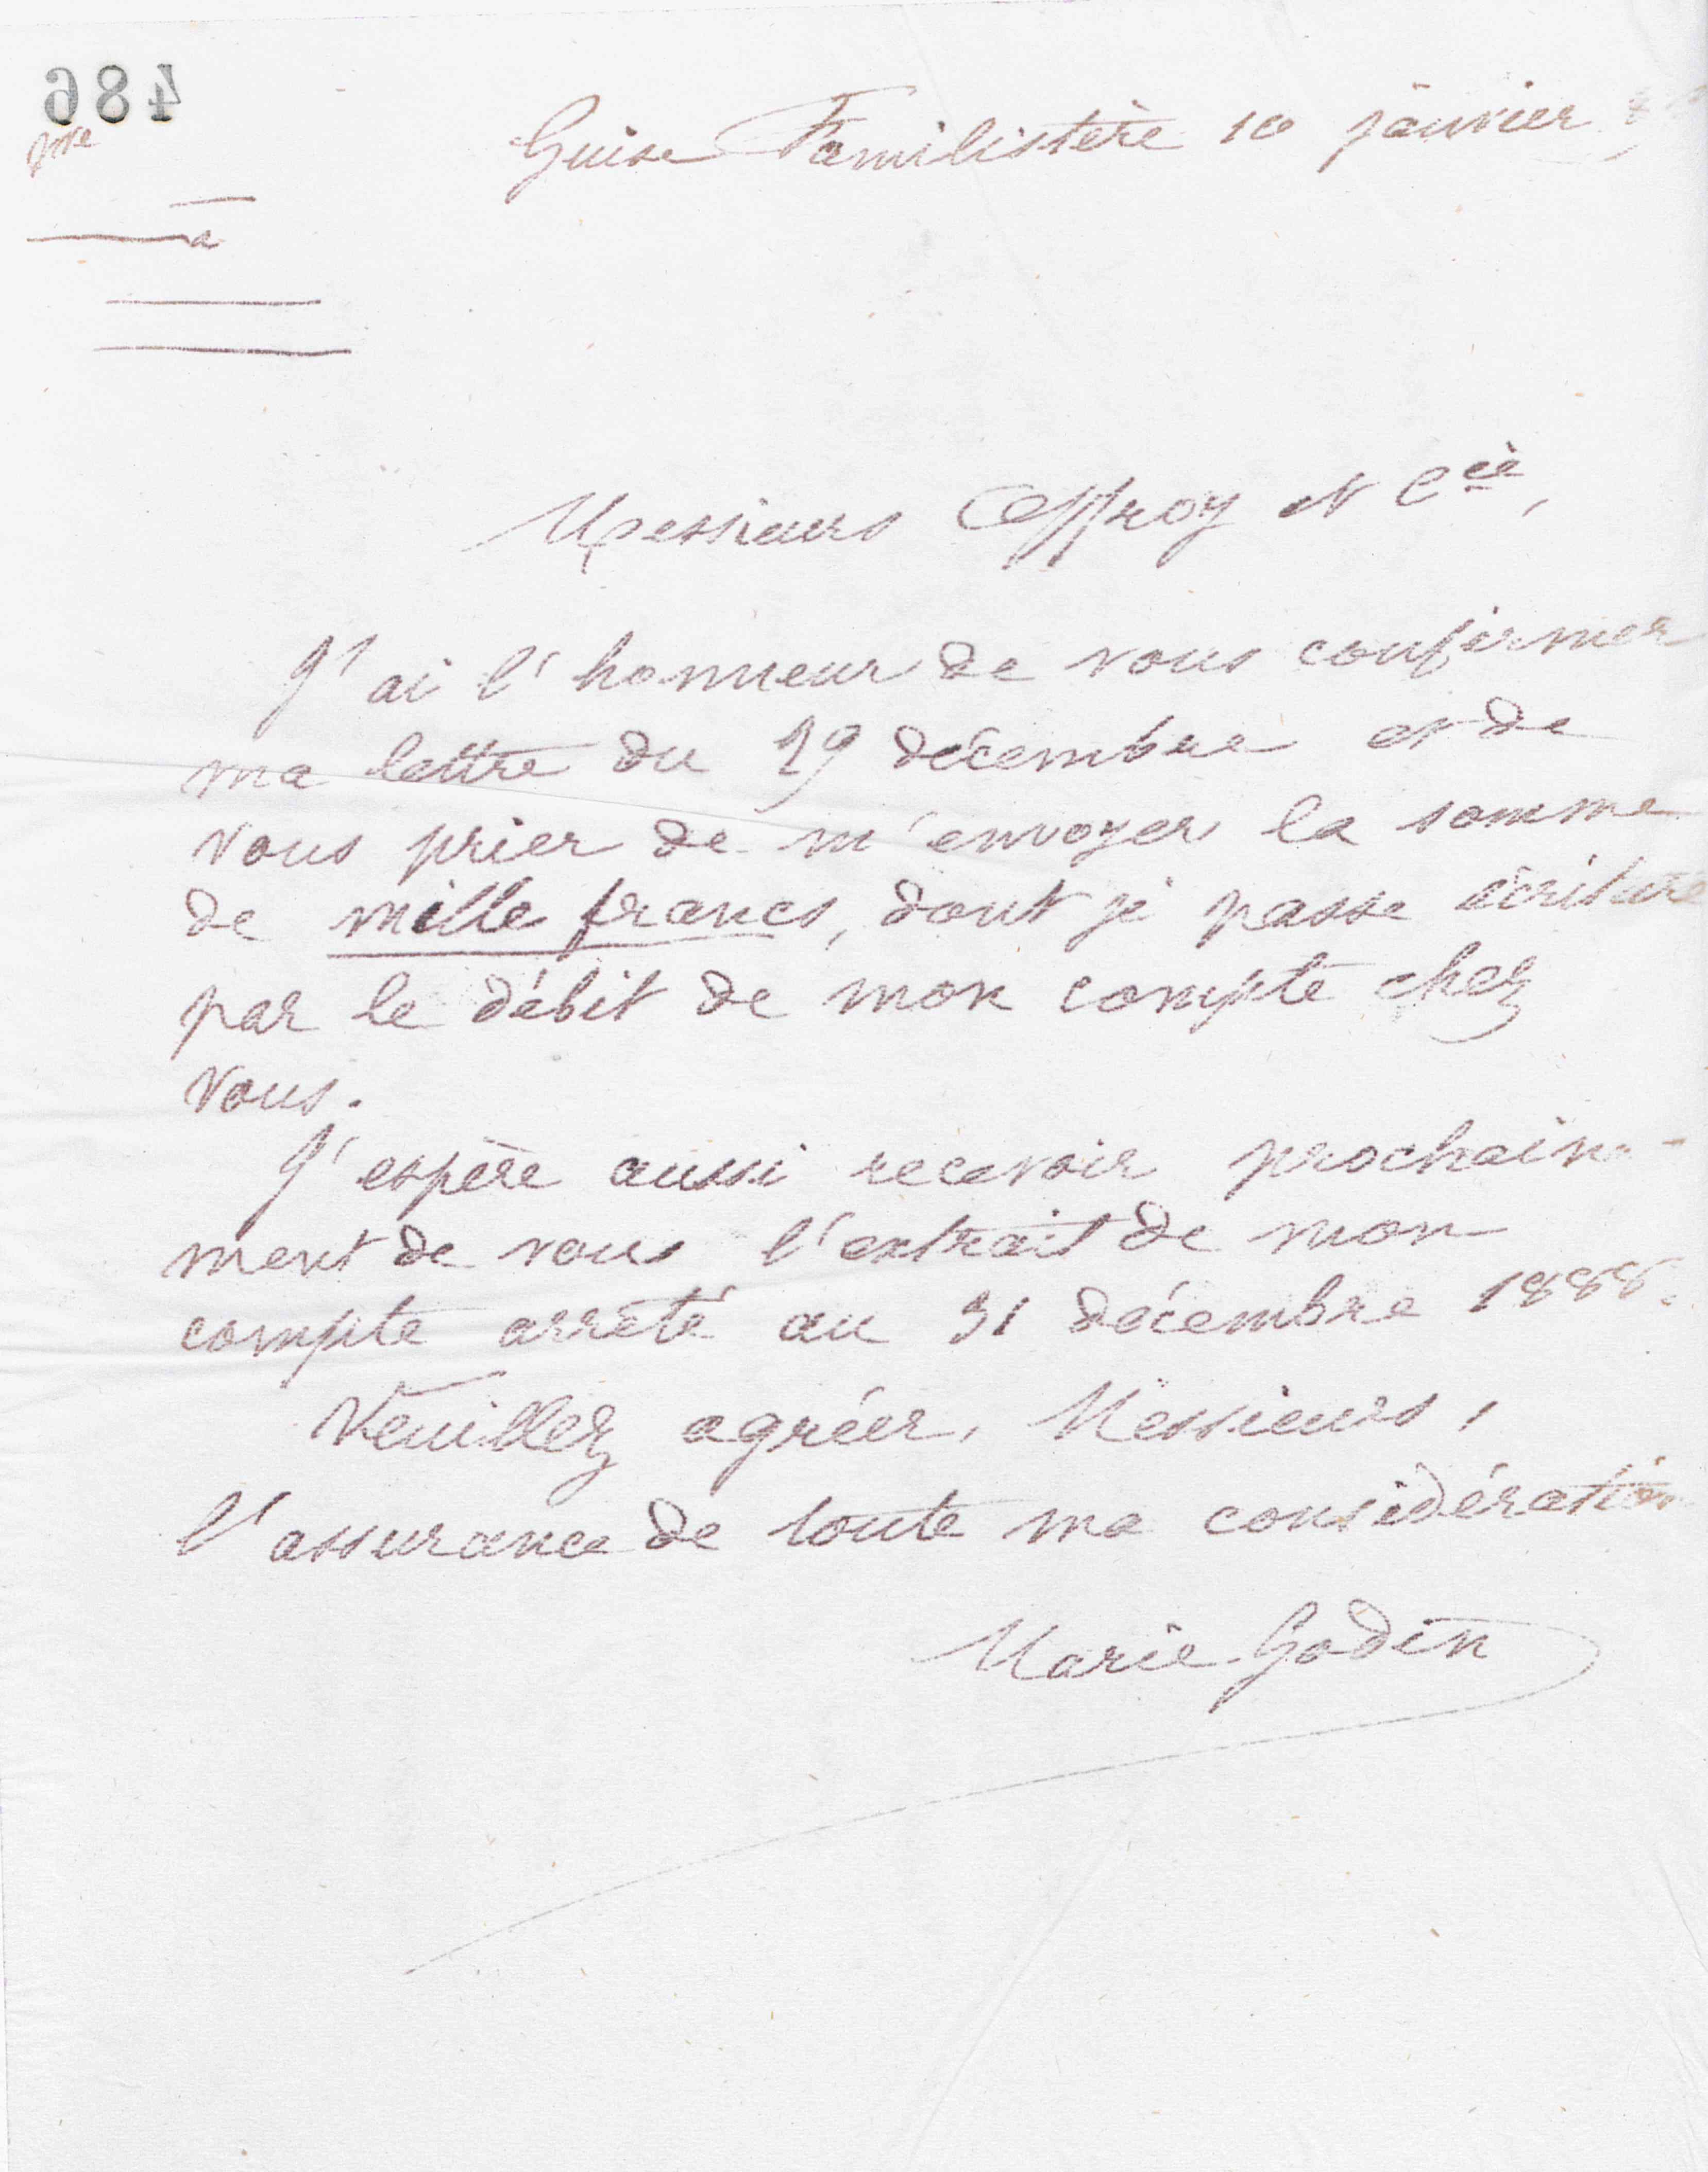 486
Guise Familistère 10 janvier
Messieurs Coffroy et Cie,
J'ai l'honneur de vous confirmer
ma lettre du 29 décembre et de
vous prier de m'envoyer la somme
de mille francs, dont je passe écriture
par le débit de mon compte chez
vous.
J'espère aussi recevoir prochaine-
ment de vous l'extrait de mon
compte arrêté au 31 décembre 1888.
Veuillez agréer, Messieurs,
l'assurance de toute ma considération
Marie Godin